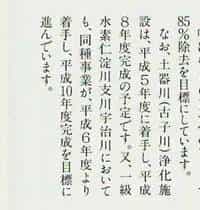 85％除去を目標にしています。
なお、土器川(古子川)浄化施
設は、平成5年度に着手し、平成
8年度完成の予定です。又、一級
水素仁淀川支川宇治川において
も、同種事業が、平成6年度より
着手し、平成10年度完成を目標に
進んでいます。